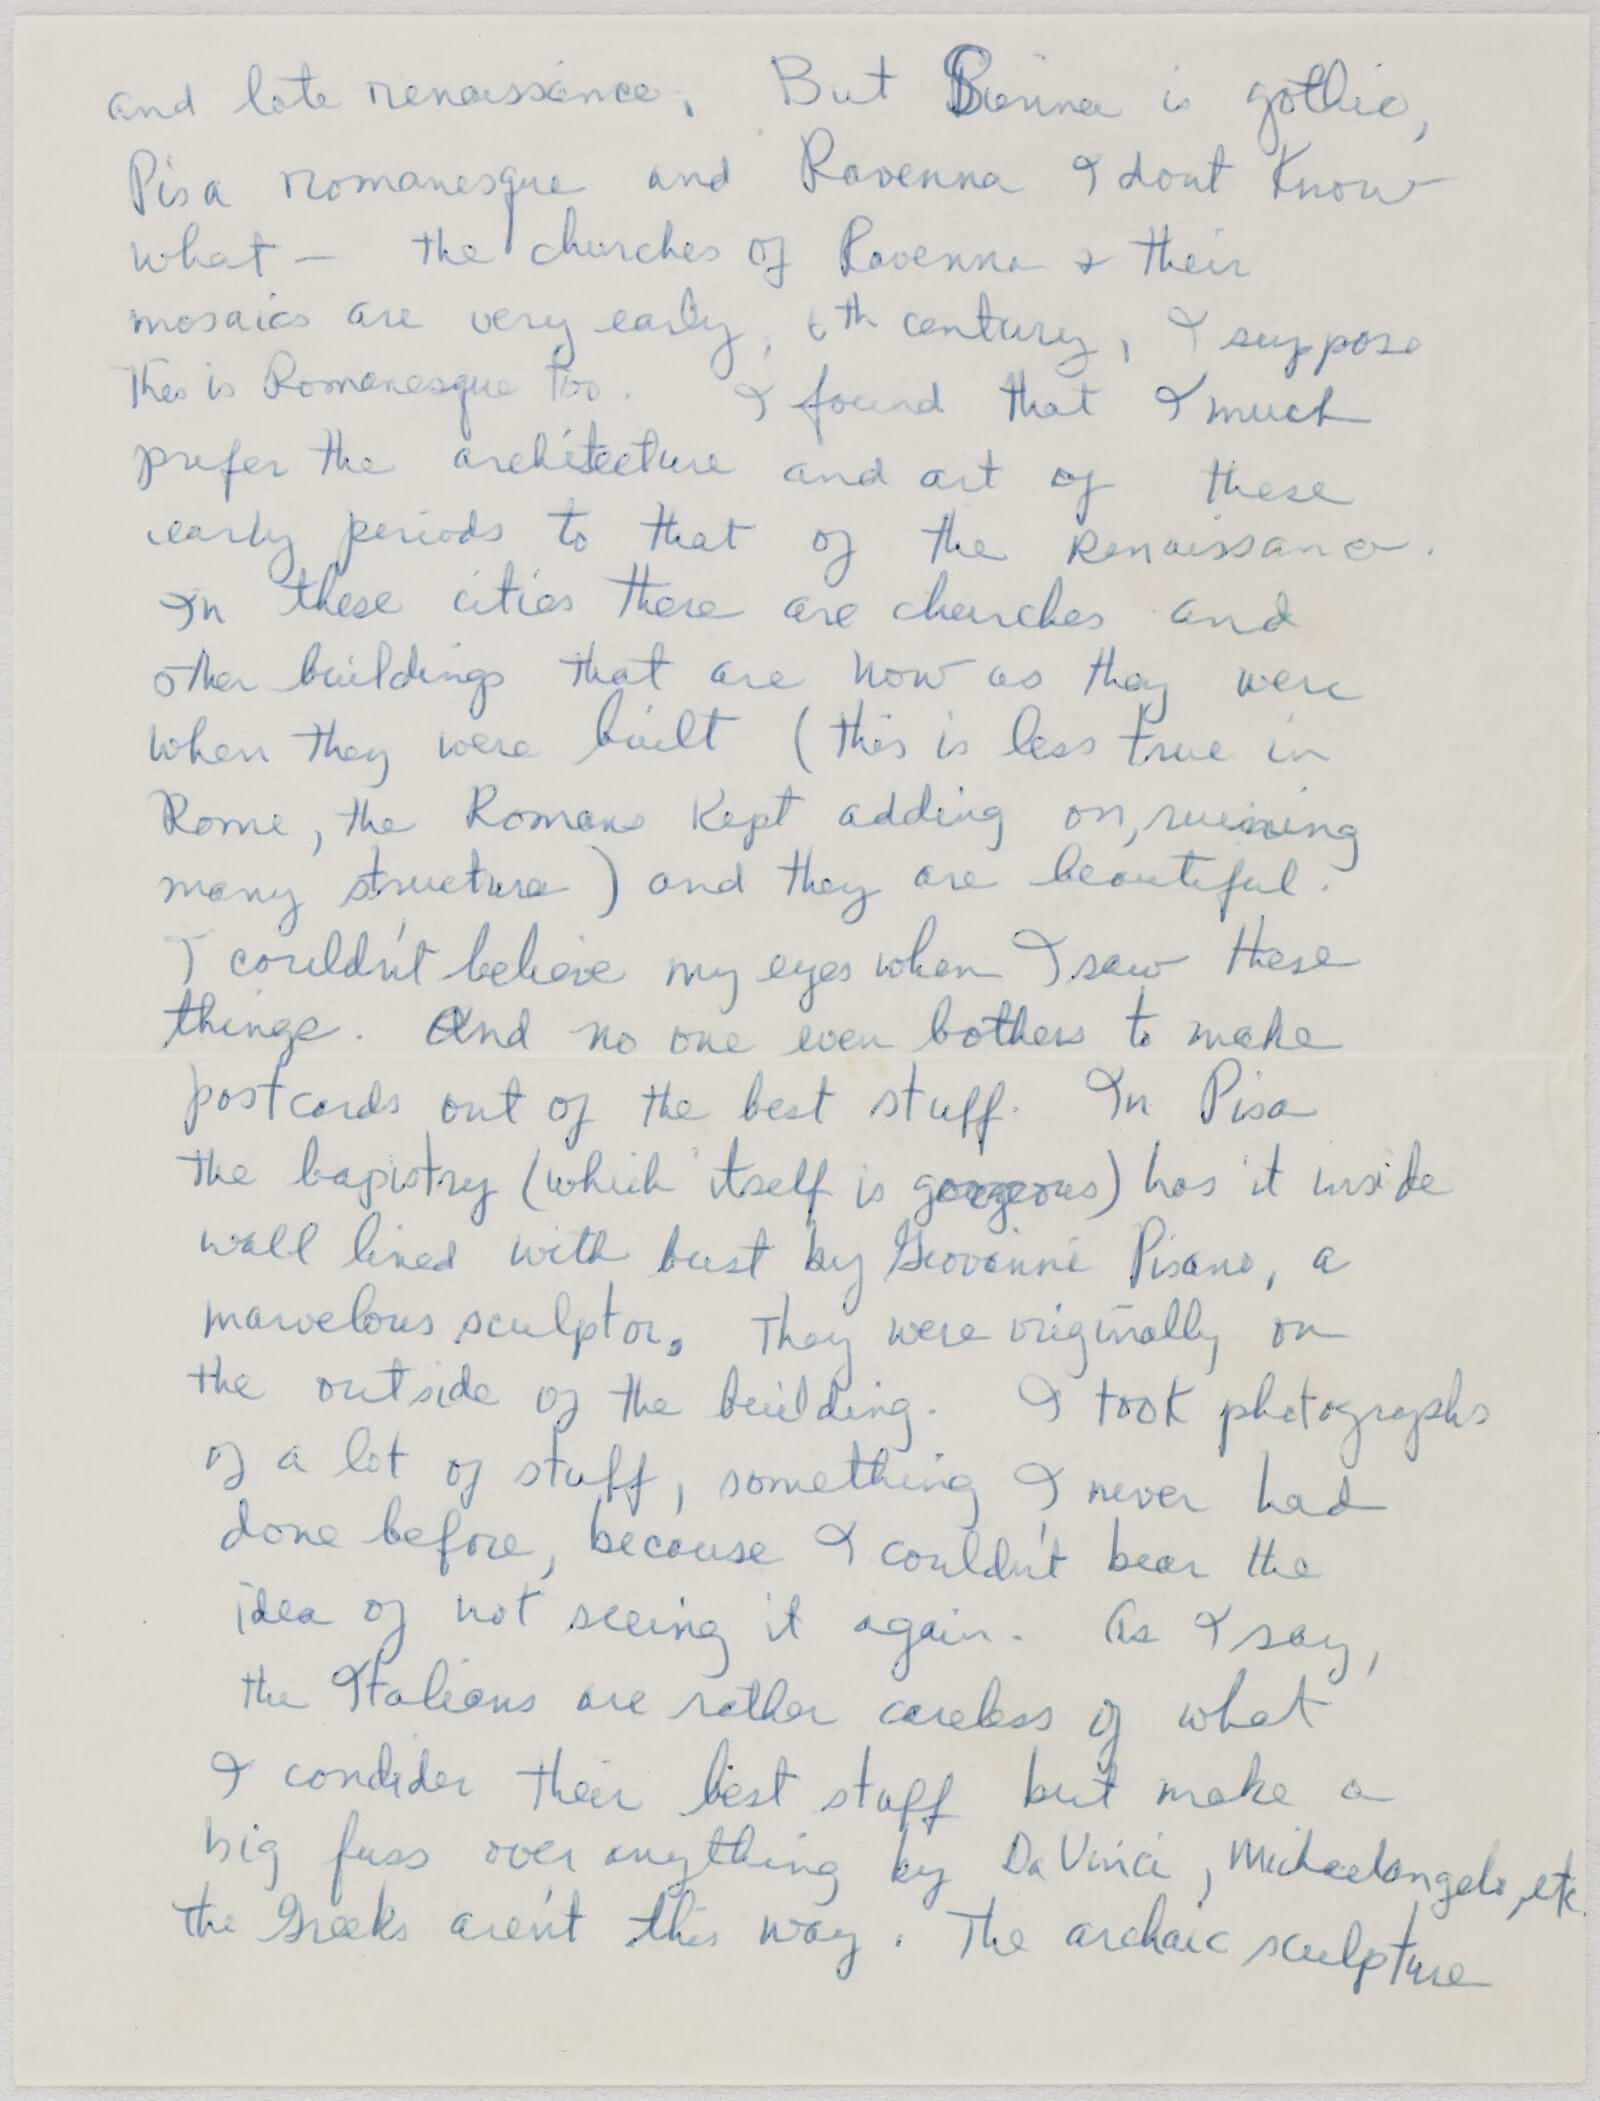 and late renaissance. But Sienna is gothic,
Pisa romanesque and Ravenna I dont know
what — the churches of Ravenna & their
mosaics are very early, 6th century, I suppose
this is Romanesque too. I found that I much
prefer the architecture and art of these
early periods to that of the Renaissance.
In these cities there are churches and
other buildings that are now as they were
when they were built (this is less true in
Rome, the Romans kept adding on, ruining
many structure) and they are beautiful.
I couldn't believe my eyes when I saw these
things. And no one even bothers to make
postcards out of the best stuff. In Pisa
the bapistry (which itself is gorgeous) has it inside
wall lined with bust by Giovanni Pisano, a
marvelous sculptor. They were originally on
the outside of the building. I took photographs
of a lot of stuff, something I never had
done before, because I couldn't bear the
idea of not seeing it again. As I say,
the Italians are rather careless of what
I condider their best stuff but make a
big fuss over anything by Da Vinci, Michaelangelo, etc.
the Greeks aren't this way. The archaic sculpture